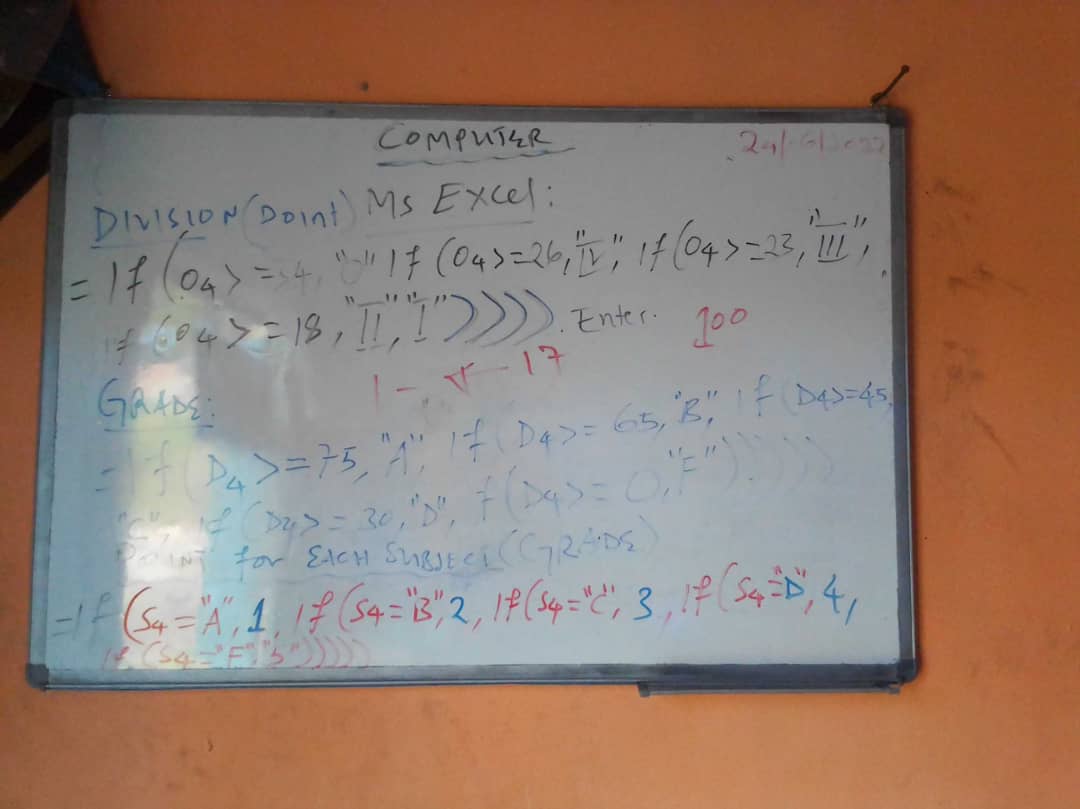 COMPUTER
DIVISION (Point) Ms Excel:
= If (O4>=34, "0" If (O4>=26, "IV", If (O4>=23, "III",
If (O4>=18, "II", "I")))). Enter. 100
1 - 17
GRADE:
= If (D4>=75, "A", If (D4>=65, "B", If (D4>=45,
"C", If (D4>=30, "D", f (D4>=0, "F")))))
POINT for EACH SUBJECT (GRADE)
=If (S4="A", 1, If (S4="B", 2, If (S4="C", 3, If (S4="D", 4,
If (S4="F", "5")))))